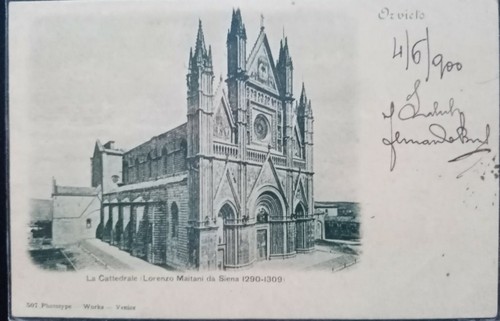 Orvieto
4/6/900
La Cattedrale (Lorenzo Maitani da Siena 1290-1309)
507 Phototype Works - Venice